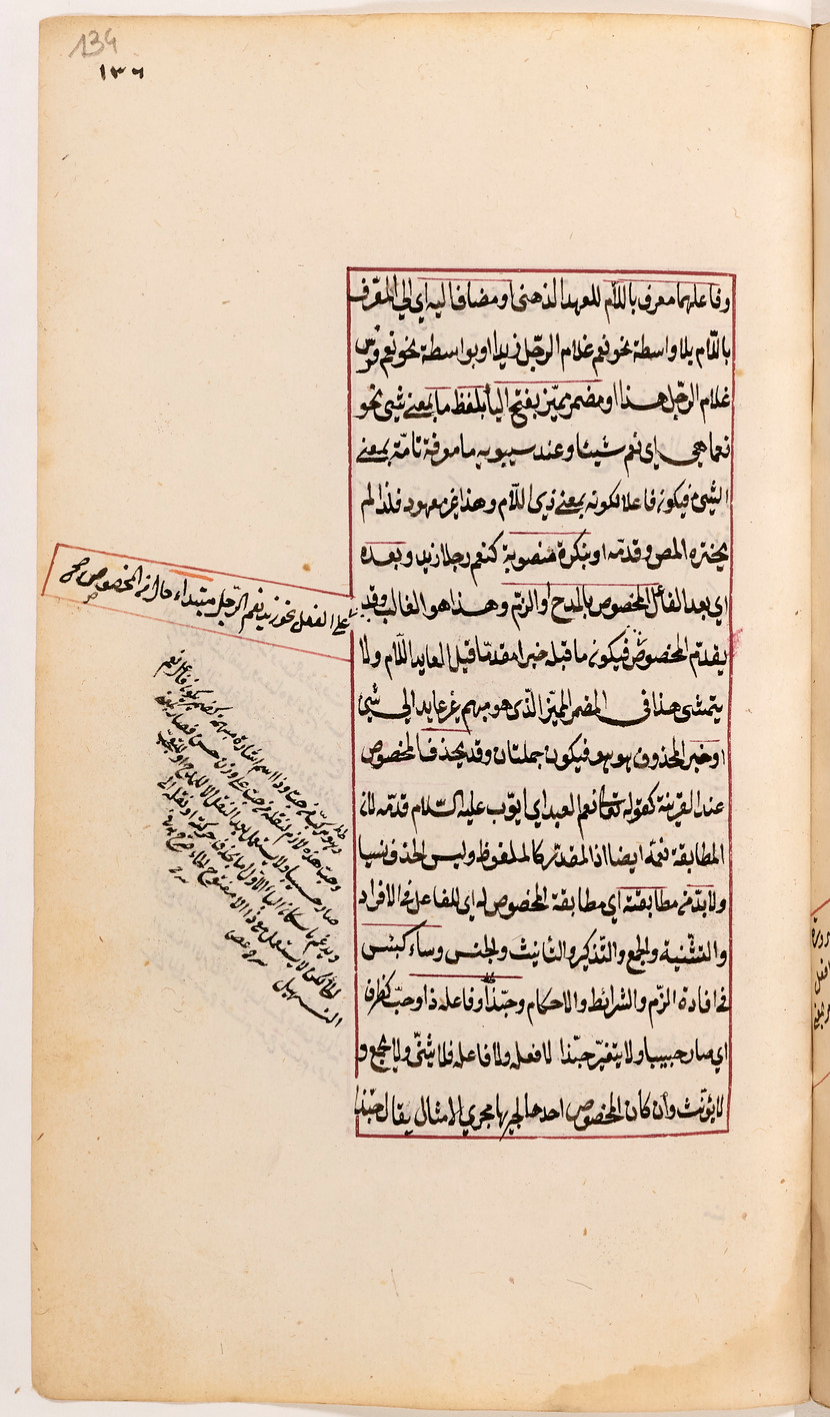 134
١٣٦
وفاعلهما معرف باللام للعهد الذهني او مضاف اليه اي الي المعّرف
باللّام بلا واسطة نحو نعم غلام الرجّل زيد او بواسطة نحو نعم فرس
غلام الرجّل هذا او مضمر مميّز بفتح اليا بلفظ ما بمعني شئ نحو
نعما هي اي نعم شيئا وعند سيبويه ما معرفة تامّة بمعني
الشئ فيكون فاعلا لكونه بمعني ذي اللّام وهذا غير معهود فلذا لم
يختره المص وقدمّه او بنكرة منصوبة كنعم رجلا زيد وبعده
اي بعد الفاعل المخصوص بالمدح او الذّم وهذا هو الغالب وقد
يقدّم المخصوص فيكون ما قبله خبرا مقدما قيل العايد اللّام ولا
يتمشي هذا في المضمر المميّز الذّي هو مبهم غير عايد الي شئ
او خبر المحذوف هو هو فيكون جملتان وقد يحذف المخصوص
عند القرينة كقوله تعا نعم العبد اي ايوّب عليه السّلام قدمّه لان
المطابقة ثمة ايضا اذ المقدّر كالملفوظ وليس الحذف نسيا
ولا بدّ من مطابقته اي مطابقة المخصوص له اي للفاعل في الافراد
والتثنية والجمع والتذكير والتانيث والجنس وساء كبئس
في افادة الذّم والشرائط والاحكام وحبّذا وفاعله ذا وحبّ كظرف
اي صار حبيبا ولا يتغيّر حبّذا لا فعله ولا فاعله فلا يثنّي ولا يجمع و
لا يؤنّث وأن كان المخصوص احدها لجريها مجري الامثال يقال حبّذا
علي الفعل نحو زيد نعم الرّجل مبتداء حال ان المخصوص صح
وحب هذه لازم
صار حبيبا ولا يستعمل
التسهيل